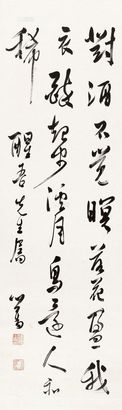 對酒不覺暝落花盈我
衣醉起步溪月鳥還人亦
稀
醒吾先生屬
心畬